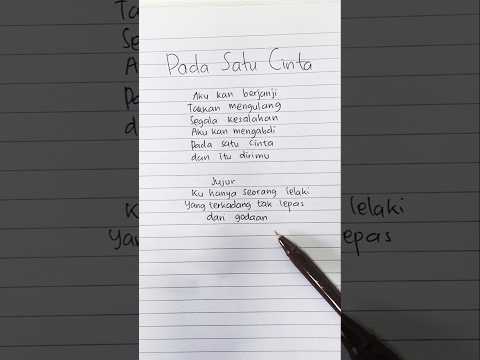 Pada Satu Cinta
Aku kan berjanji
Takkan mengulang
Segala kesalahan
Aku kan mengabdi
Pada satu cinta
dan itu dirimu
Jujur
Ku hanya seorang lelaki
Yang terkadang tak lepas
dari godaan